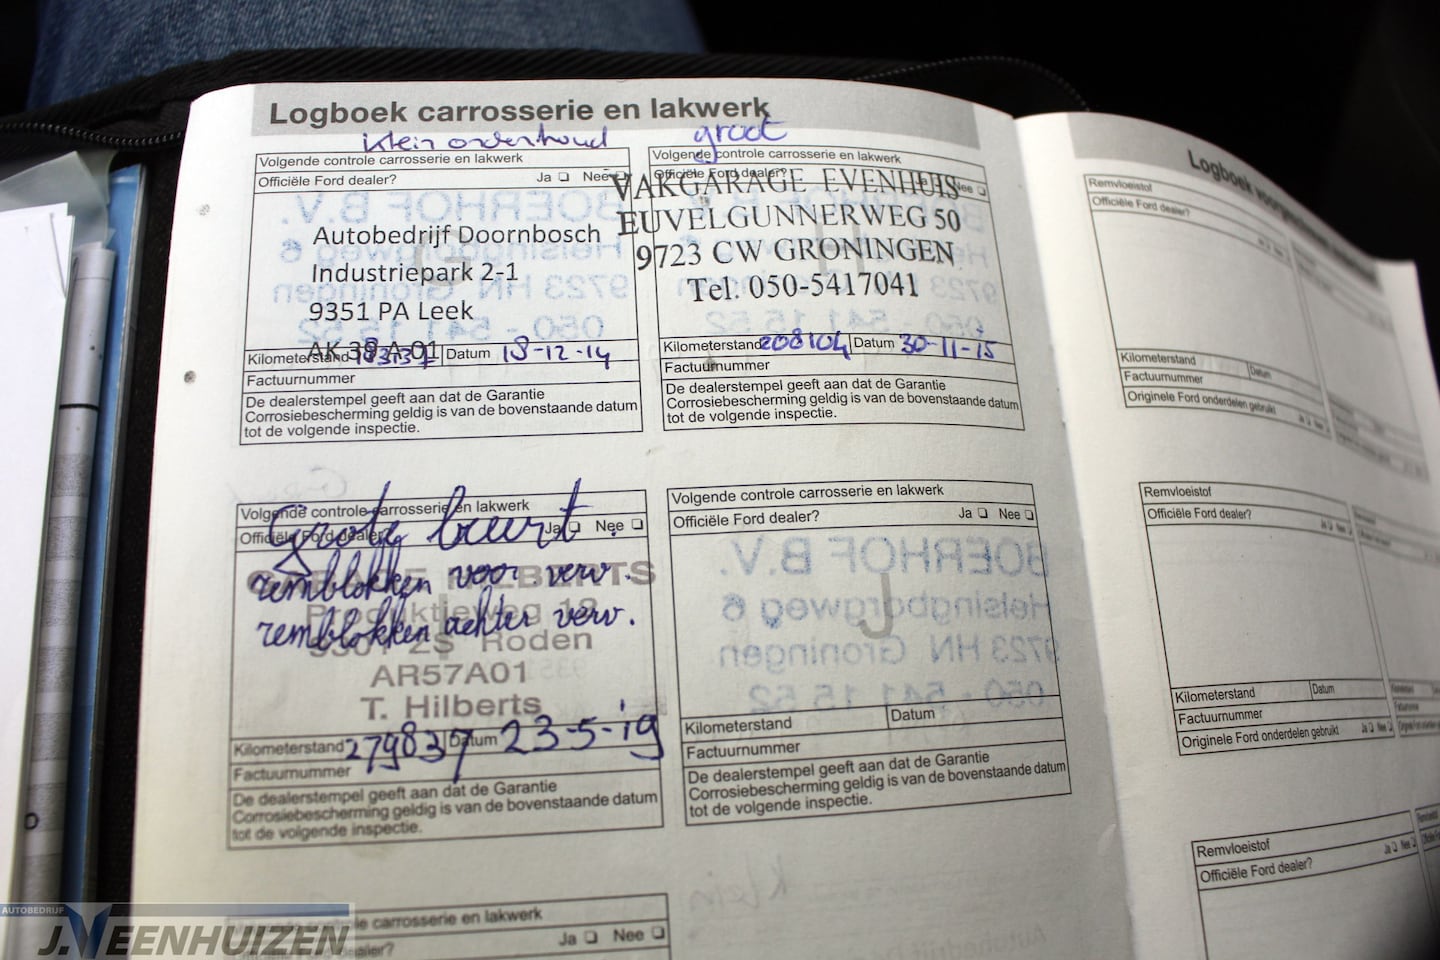 Logboek carrosserie en lakwerk
klein onderhoud
Volgende controle carrosserie en lakwerk
Officiële Ford dealer? Ja Nee
Autobedrijf Doornbosch
Industriepark 2-1
9351 PA Leek
AK 38 A 01
Kilometerstand Datum 18-12-14
Factuurnummer
De dealerstempel geeft aan dat de Garantie
Corrosiebescherming geldig is van de bovenstaande datum
tot de volgende inspectie.
groot
Volgende controle carrosserie en lakwerk
Officiële Ford dealer? Nee
VAKGARAGE EVENHUIS
EUVELGUNNERWEG 50
9723 CW GRONINGEN
Tel. 050-5417041
Kilometerstand 208104 Datum 30-11-15
Factuurnummer
De dealerstempel geeft aan dat de Garantie
Corrosiebescherming geldig is van de bovenstaande datum
tot de volgende inspectie.
Volgende controle carrosserie en lakwerk
Officiële Ford dealer? Ja Nee
Grote beurt
remblokken voor verv.
remblokken achter verv.
HILBERTS
Produktieweg
Roden
AR57A01
T. Hilberts
Kilometerstand 279837 Datum 23-5-19
Factuurnummer
De dealerstempel geeft aan dat de Garantie
Corrosiebescherming geldig is van de bovenstaande datum
tot de volgende inspectie.
Volgende controle carrosserie en lakwerk
Officiële Ford dealer? Ja Nee
BOERHOF B.V.
Helsingborgweg 6
9723 HN Groningen
050 - 541 15 52
Kilometerstand Datum
Factuurnummer
De dealerstempel geeft aan dat de Garantie
Corrosiebescherming geldig is van de bovenstaande datum
tot de volgende inspectie.
carrosserie en lakwerk
dealer? Ja Nee
Logboek
Remvloeistof
Officiële Ford dealer?
Kilometerstand Datum
Factuurnummer
Originele Ford onderdelen gebruikt Ja Nee
Remvloeistof
Officiële Ford dealer? Ja Nee
Kilometerstand Datum
Factuurnummer
Originele Ford onderdelen gebruikt Ja Nee
Remvloeistof
Officiële Ford dealer? Ja Nee
AUTOBEDRIJF
J. VEENHUIZEN